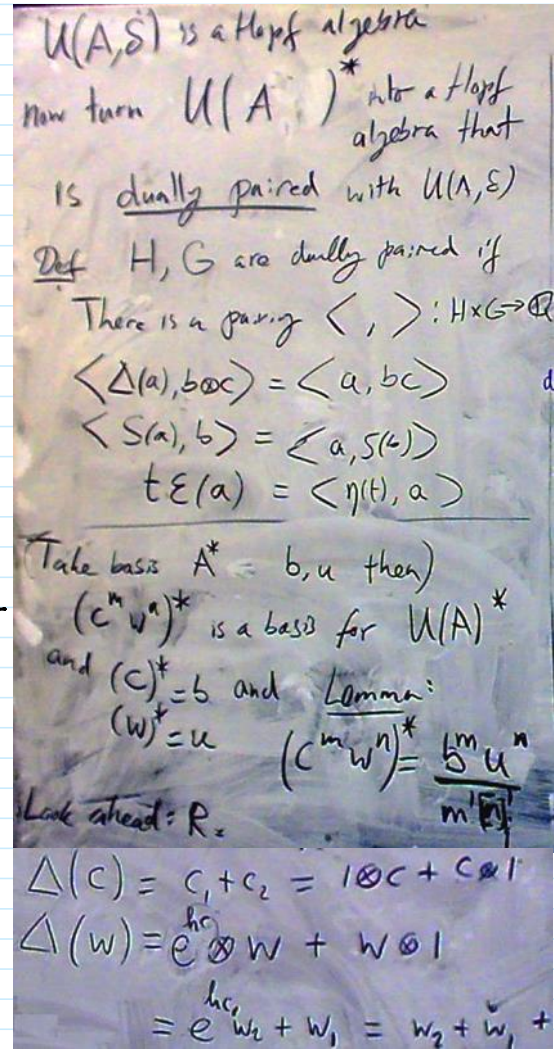 U(A,δ) is a Hopf algebra
now turn U(A )* into a Hopf
algebra that
is dually paired with U(A,δ)
Def H, G are dually paired if
There is a pairing < , > : H×G→Q
<Δ(a), b⊗c> = <a, bc>
<S(a), b> = <a, S(b)>
tε(a) = <η(t), a>
(Take basis A* = b, u then)
(c^m w^n)* is a basis for U(A)*
and (c)* = b and Lemma:
(w)* = u (c^m w^n)* = b^m u^n / m! [n]!
Look ahead: R =
Δ(c) = c₁ + c₂ = 1⊗c + c⊗1
Δ(w) = e^{hc} ⊗ w + w⊗1
= e^{hc₁} w₂ + w₁ = w₂ + w₁ +